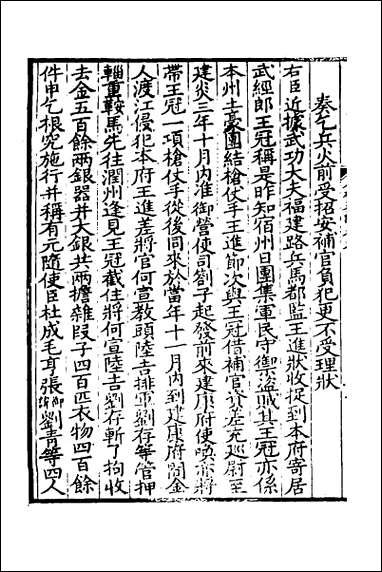 奏乞兵火前受招安補官負犯更不受理狀
右臣近據武功大夫福建路兵馬都監王進狀收捉到本府寄居
武經郎王冠稱是昨知宿州日團集軍民守禦盜賊其王冠亦係
本州土豪團結槍仗手王進節次與王冠借補官資差充巡尉至
建炎三年十月內准御營使司劄子起發前來建康府使喚亦將
帶王冠一項槍仗手從後同來於當年十一月內到建康府閤金
人渡江侵犯本府王進差將官何宣教頭陸吉排軍劉存等管押
輜重鞍馬先往潤州逢見王冠截住將何宣陸吉劉存斬了拘收
去金五百餘兩銀器并大銀共兩擔雜段子四百匹衣物四百餘
件申乞根究施行并稱有元隨使臣杜成毛亨張御諱劉青等四人